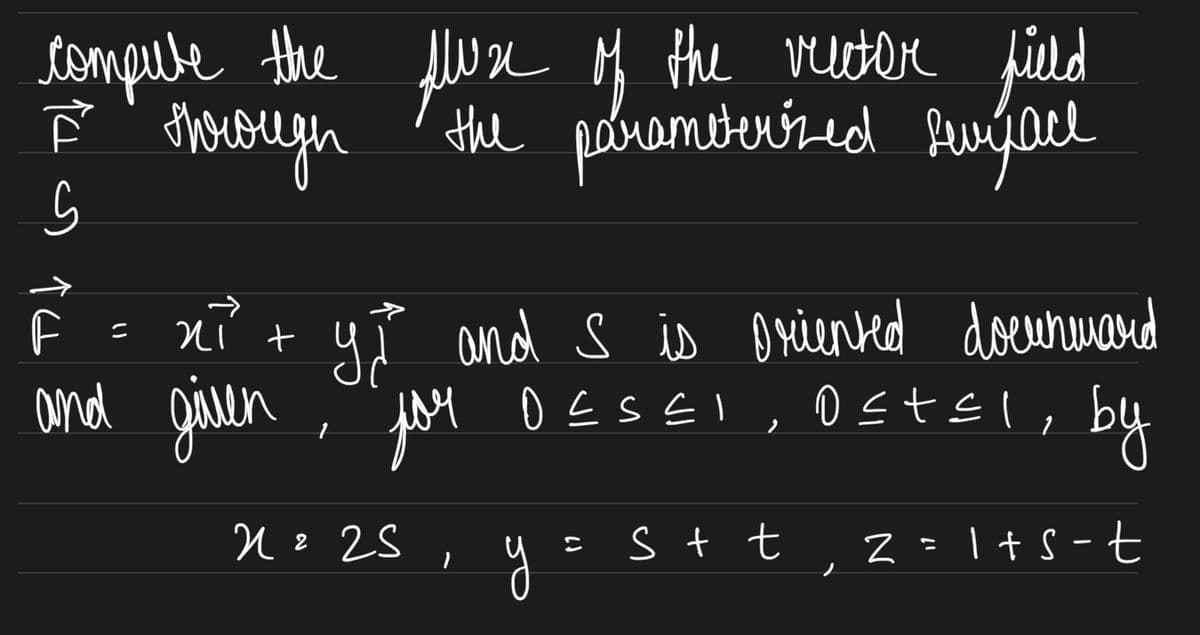 compute the flux of the vector field
F⃗ through the parameterized surface
S
F⃗ = xi⃗ + yj⃗ and S is oriented downward
and given, for 0 ≤ s ≤ 1, 0 ≤ t ≤ 1, by
x = 2s, y = s + t, z = 1 + s - t